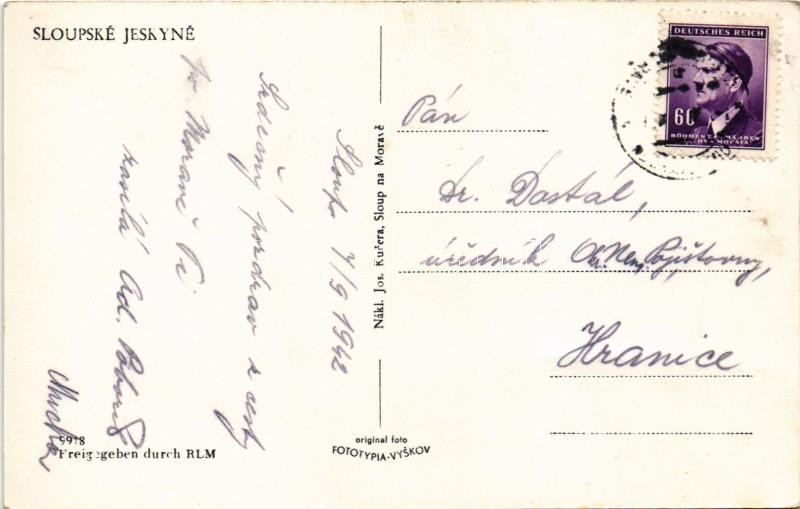 SLOUPSKÉ JESKYNĚ
Sloup 17/9 1942
Srdečný pozdrav z cesty
po Moravě Ti
zasílá Ad.
9918
Freigegeben durch RLM
Nákl. Jos. Kučera, Sloup na Moravě
original foto
FOTOTYPIA-VYŠKOV
DEUTSCHES REICH
60
BÖHMEN U. MÄHREN
ČECHY A MORAVA
Pán
Fr. Dostál,
úředník Okr. Nem. Pojišťovny,
Hranice